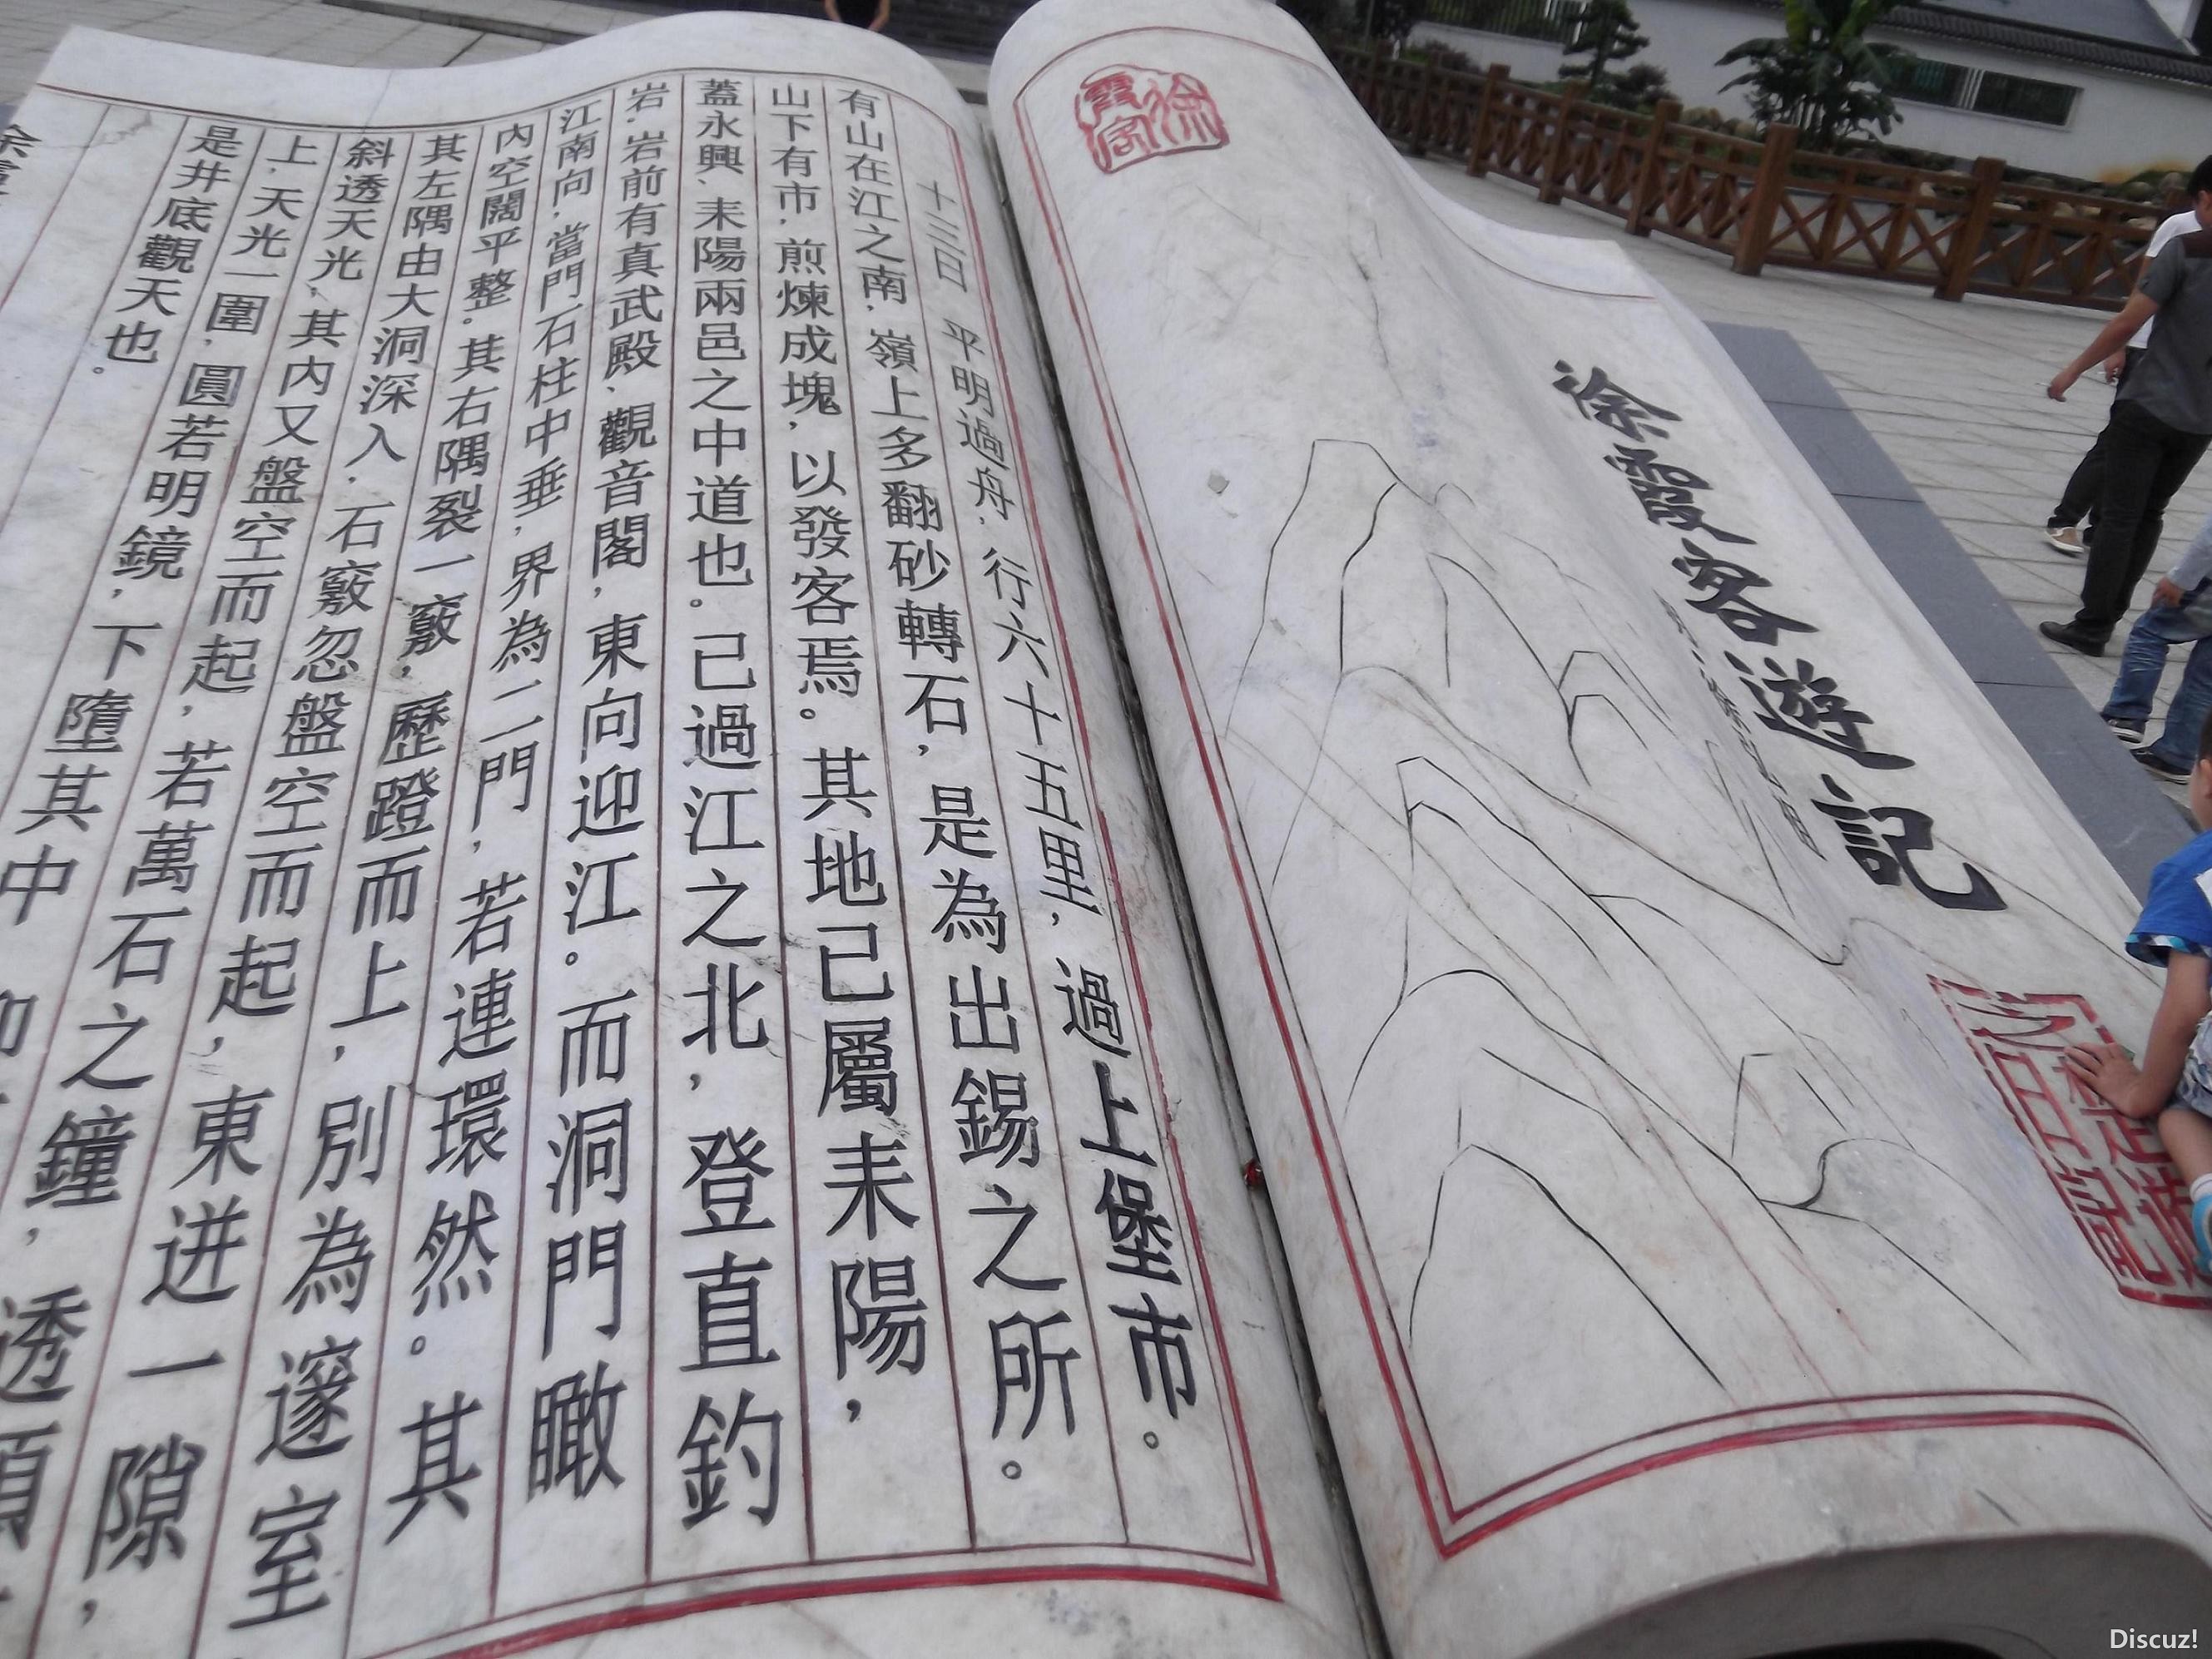 徐霞客
徐霞客遊記
十三日 平明過舟，行六十五里，過上堡市。
有山在江之南，嶺上多翻砂轉石，是為出錫之所。
山下有市，煎煉成塊，以發客焉。其地已屬耒陽，
蓋永興、耒陽兩邑之中道也。已過江之北，登直釣
岩。岩前有真武殿、觀音閣，東向迎江。而洞門瞰
江南向，當門石柱中垂，界為二門，若連環然。其
內空闊平整。其右隅裂一竅，歷蹬而上，別為邃室
其左隅由大洞深入，石竅忽盤空而起，東迸一隙，
斜透天光，其內又盤空而起，若萬石之鐘，透頂
上，天光一圍，圓若明鏡，下墮其中
是井底觀天也。
Discuz!